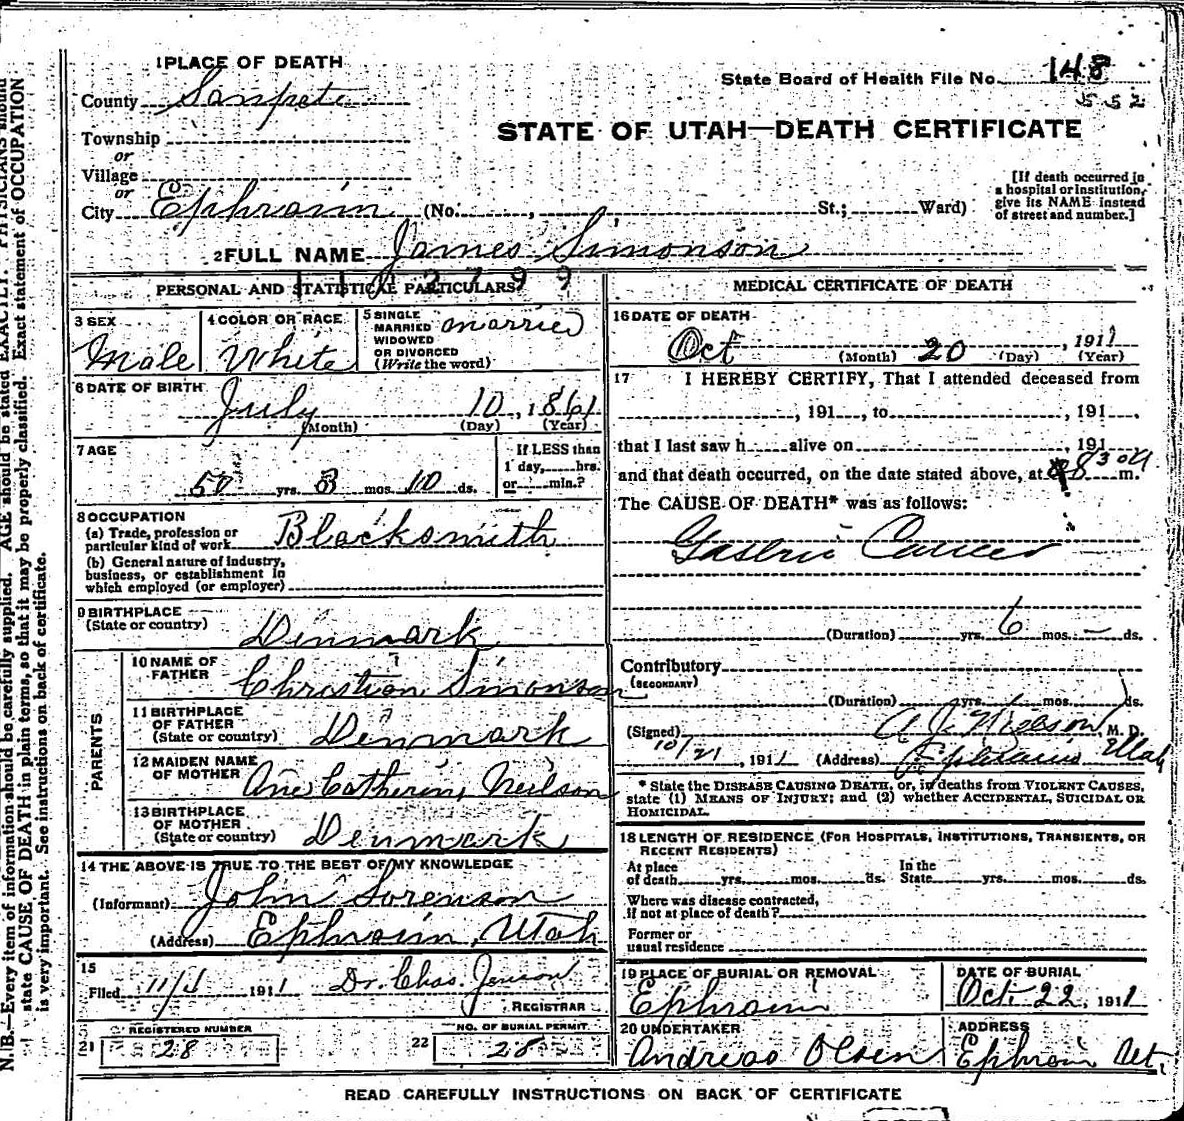 1 PLACE OF DEATH
County Sanpete
Township
or
Village
or
City Ephraim (No. , St.; Ward)
State Board of Health File No. 148
552
STATE OF UTAH—DEATH CERTIFICATE
[If death occurred in
a hospital or institution,
give its NAME instead
of street and number.]
2 FULL NAME James Simonson
PERSONAL AND STATISTICAL PARTICULARS
3 SEX
Male
4 COLOR OR RACE
White
5 SINGLE
MARRIED
WIDOWED
OR DIVORCED
(Write the word)
married
6 DATE OF BIRTH
July 10, 1861
(Month) (Day) (Year)
7 AGE
50 yrs. 3 mos. 10 ds.
If LESS than
1 day, hrs.
or min.?
8 OCCUPATION
(a) Trade, profession or
particular kind of work Blacksmith
(b) General nature of industry,
business, or establishment in
which employed (or employer)
9 BIRTHPLACE
(State or country) Denmark
PARENTS
10 NAME OF
FATHER Christian Simonson
11 BIRTHPLACE
OF FATHER
(State or country) Denmark
12 MAIDEN NAME
OF MOTHER Ane Catherin Neilson
13 BIRTHPLACE
OF MOTHER
(State or country) Denmark
14 THE ABOVE IS TRUE TO THE BEST OF MY KNOWLEDGE
(Informant) John Sorenson
(Address) Ephraim, Utah
15
Filed 11/4 1911 Dr. Chas. Jenson
REGISTRAR
21 REGISTERED NUMBER
28
22 NO. OF BURIAL PERMIT
28
MEDICAL CERTIFICATE OF DEATH
16 DATE OF DEATH
Oct 20, 1911
(Month) (Day) (Year)
17 I HEREBY CERTIFY, That I attended deceased from
, 191 , to , 191 ,
that I last saw h alive on , 191
and that death occurred, on the date stated above, at 8 30 a m.
The CAUSE OF DEATH* was as follows:
Gastric Cancer
(Duration) yrs. 6 mos. – ds.
Contributory
(SECONDARY)
(Duration) yrs. mos. ds.
(Signed) A. J. Nielson, M. D.
10/21, 1911 (Address) Ephraim Utah
* State the DISEASE CAUSING DEATH, or, in deaths from VIOLENT CAUSES,
state (1) MEANS OF INJURY; and (2) whether ACCIDENTAL, SUICIDAL OR
HOMICIDAL.
18 LENGTH OF RESIDENCE (FOR HOSPITALS, INSTITUTIONS, TRANSIENTS, OR
RECENT RESIDENTS)
At place
of death yrs. mos. ds.
In the
State yrs. mos. ds.
Where was disease contracted,
if not at place of death?
Former or
usual residence
19 PLACE OF BURIAL OR REMOVAL
Ephraim
DATE OF BURIAL
Oct. 22, 1911
20 UNDERTAKER
Andreas Olsen
ADDRESS
Ephraim Ut.
READ CAREFULLY INSTRUCTIONS ON BACK OF CERTIFICATE
N. B.—Every item of information should be carefully supplied. AGE should be stated EXACTLY. PHYSICIANS should
state CAUSE OF DEATH in plain terms, so that it may be properly classified. Exact statement of OCCUPATION
is very important. See instructions on back of certificate.